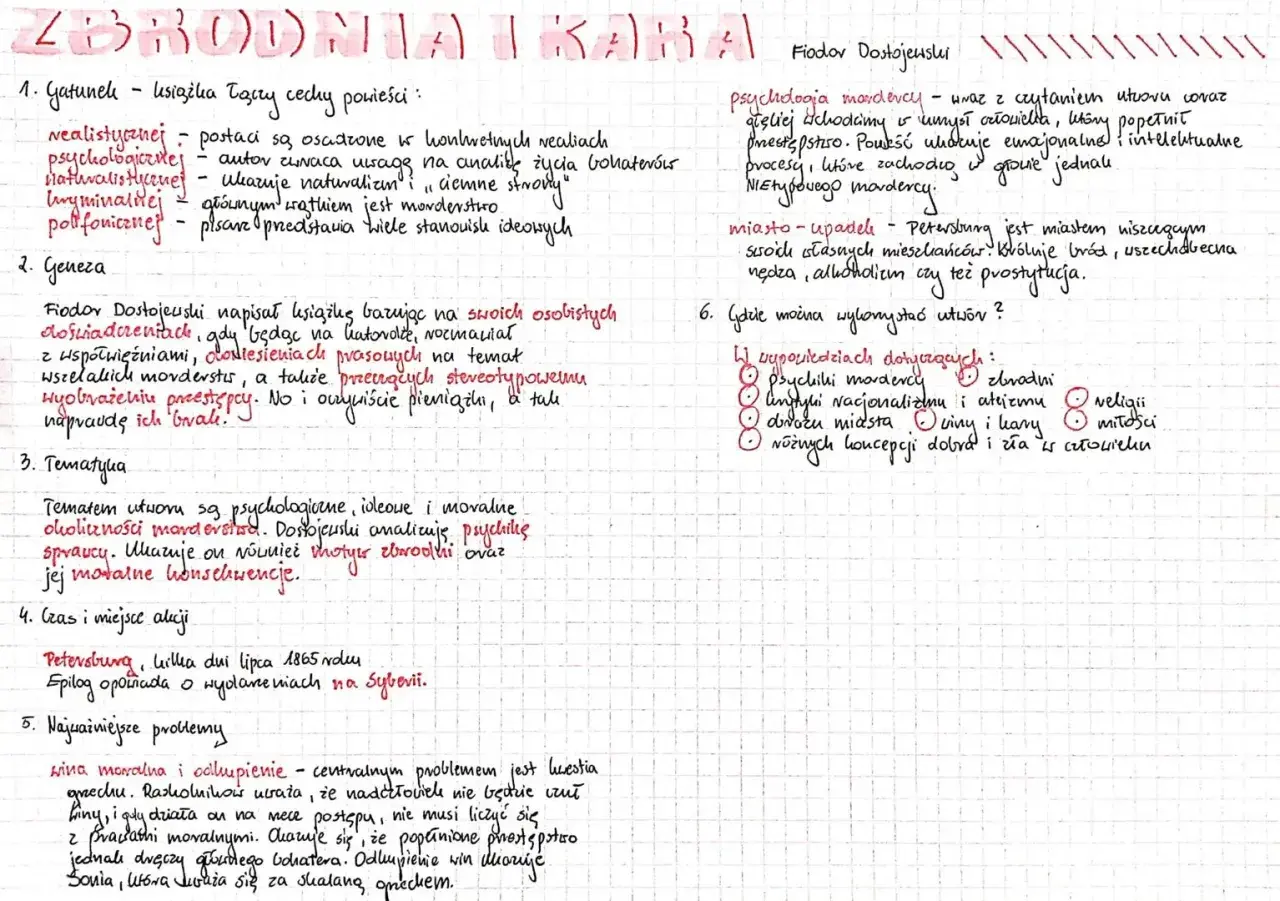 ZBRODNIA I KARA
Fiodor Dostojewski
1. Gatunek - książka łączy cechy powieści:
realistycznej - postaci są osadzone w konkretnych realiach
psychologicznej - autor zwraca uwagę na analizę życia bohaterów
naturalistycznej - ukazuje naturalizm i „ciemne strony"
kryminalnej - głównym wątkiem jest morderstwo
polifonicznej - pisarz przedstawia wiele stanowisk ideowych
2. Geneza
Fiodor Dostojewski napisał książkę bazując na swoich osobistych
doświadczeniach, gdy będąc na katordze, rozmawiał
z współwięźniami, doniesieniach prasowych na temat
wszelakich morderstw, a także przeczących stereotypowemu
wyobrażeniu przestępcy. No i oczywiście pieniążki, a tak
naprawdę ich brak.
3. Tematyka
Tematem utworu są psychologiczne, ideowe i moralne
okoliczności morderstwa. Dostojewski analizuję psychikę
sprawcy. Ukazuje on również motyw zbrodni oraz
jej moralne konsekwencje.
4. Czas i miejsce akcji
Petersburg, kilka dni lipca 1865 roku
Epilog opowiada o wydarzeniach na Syberii.
5. Najważniejsze problemy
wina moralna i odkupienie - centralnym problemem jest kwestia
grzechu. Raskolnikow uważa, że nadczłowiek nie będzie czuł
winy, i gdy działa on na rzecz postępu, nie musi liczyć się
z prawami moralnymi. Okazuje się, że popełnione przestępstwo
jednak dręczy głównego bohatera. Odkupienie win ukazuje
Sonia, która uważa się za skalaną grzechem.
psychologia mordercy - wraz z czytaniem utworu coraz
głębiej wchodzimy w umysł człowieka, który popełnił
przestępstwo. Powieść ukazuje emocjonalne i intelektualne
procesy, które zachodzą w głowie jednak
NIEtypowego mordercy.
miasto - upadek - Petersburg jest miastem niszczącym
swoich własnych mieszkańców. Króluje bród, wszechobecna
nędza, alkoholizm czy też prostytucja.
6. Gdzie można wykorzystać utwór?
W wypowiedziach dotyczących:
psychiki mordercy zbrodni
krytyki racjonalizmu i ateizmu religii
obrazu miasta winy i kary miłości
różnych koncepcji dobra i zła w człowieku